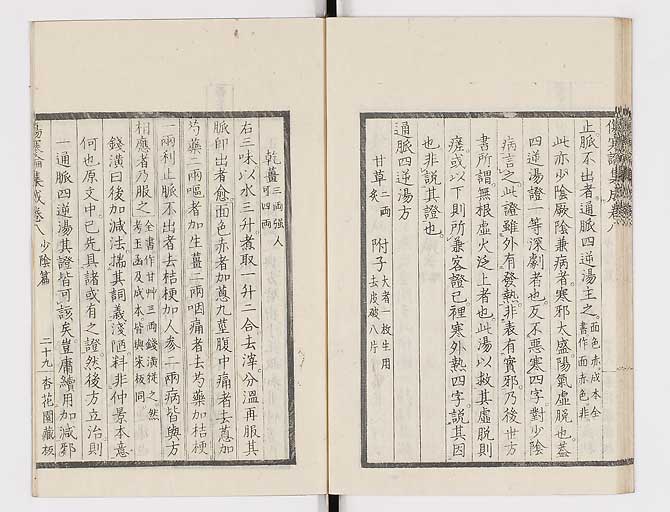 止脈不出者通脈四逆湯主之面色赤成本全書作面赤色非
此亦少陰厥陰兼病者寒邪太盛陽氣虛脫也蓋
四逆湯證一等深劇者也反不惡寒四字對少陰
病言之此證雖外有發熱非表有實邪乃後世方
書所謂無根虛火泛上者也此湯以救其虛脫則
瘥或以下則所兼客證已裡寒外熱四字說其因
也非說其證也
通脈四逆湯方
甘草二兩炙 附子大者一枚生用去皮破八片
乾薑三兩強人可四兩
右三味以水三升煮取一升二合去滓分溫再服其
脈即出者愈面色赤者加蔥九莖腹中痛者去蔥加
芍藥二兩嘔者加生薑二兩咽痛者去芍藥加桔梗
一兩利止脈不出者去桔梗加人參二兩病皆與方
相應者乃服之全書作甘艸三兩錢潢從之然考玉函及成本皆與宋板同
錢潢曰後加減法揣其詞義淺陋料非仲景本意
何也原文中已先具諸或有之證然後方立治則
一通脈四逆湯其證皆可該矣豈庸續用加減邪
傷寒論集成卷八 少陰篇 二十九 杏花園藏板